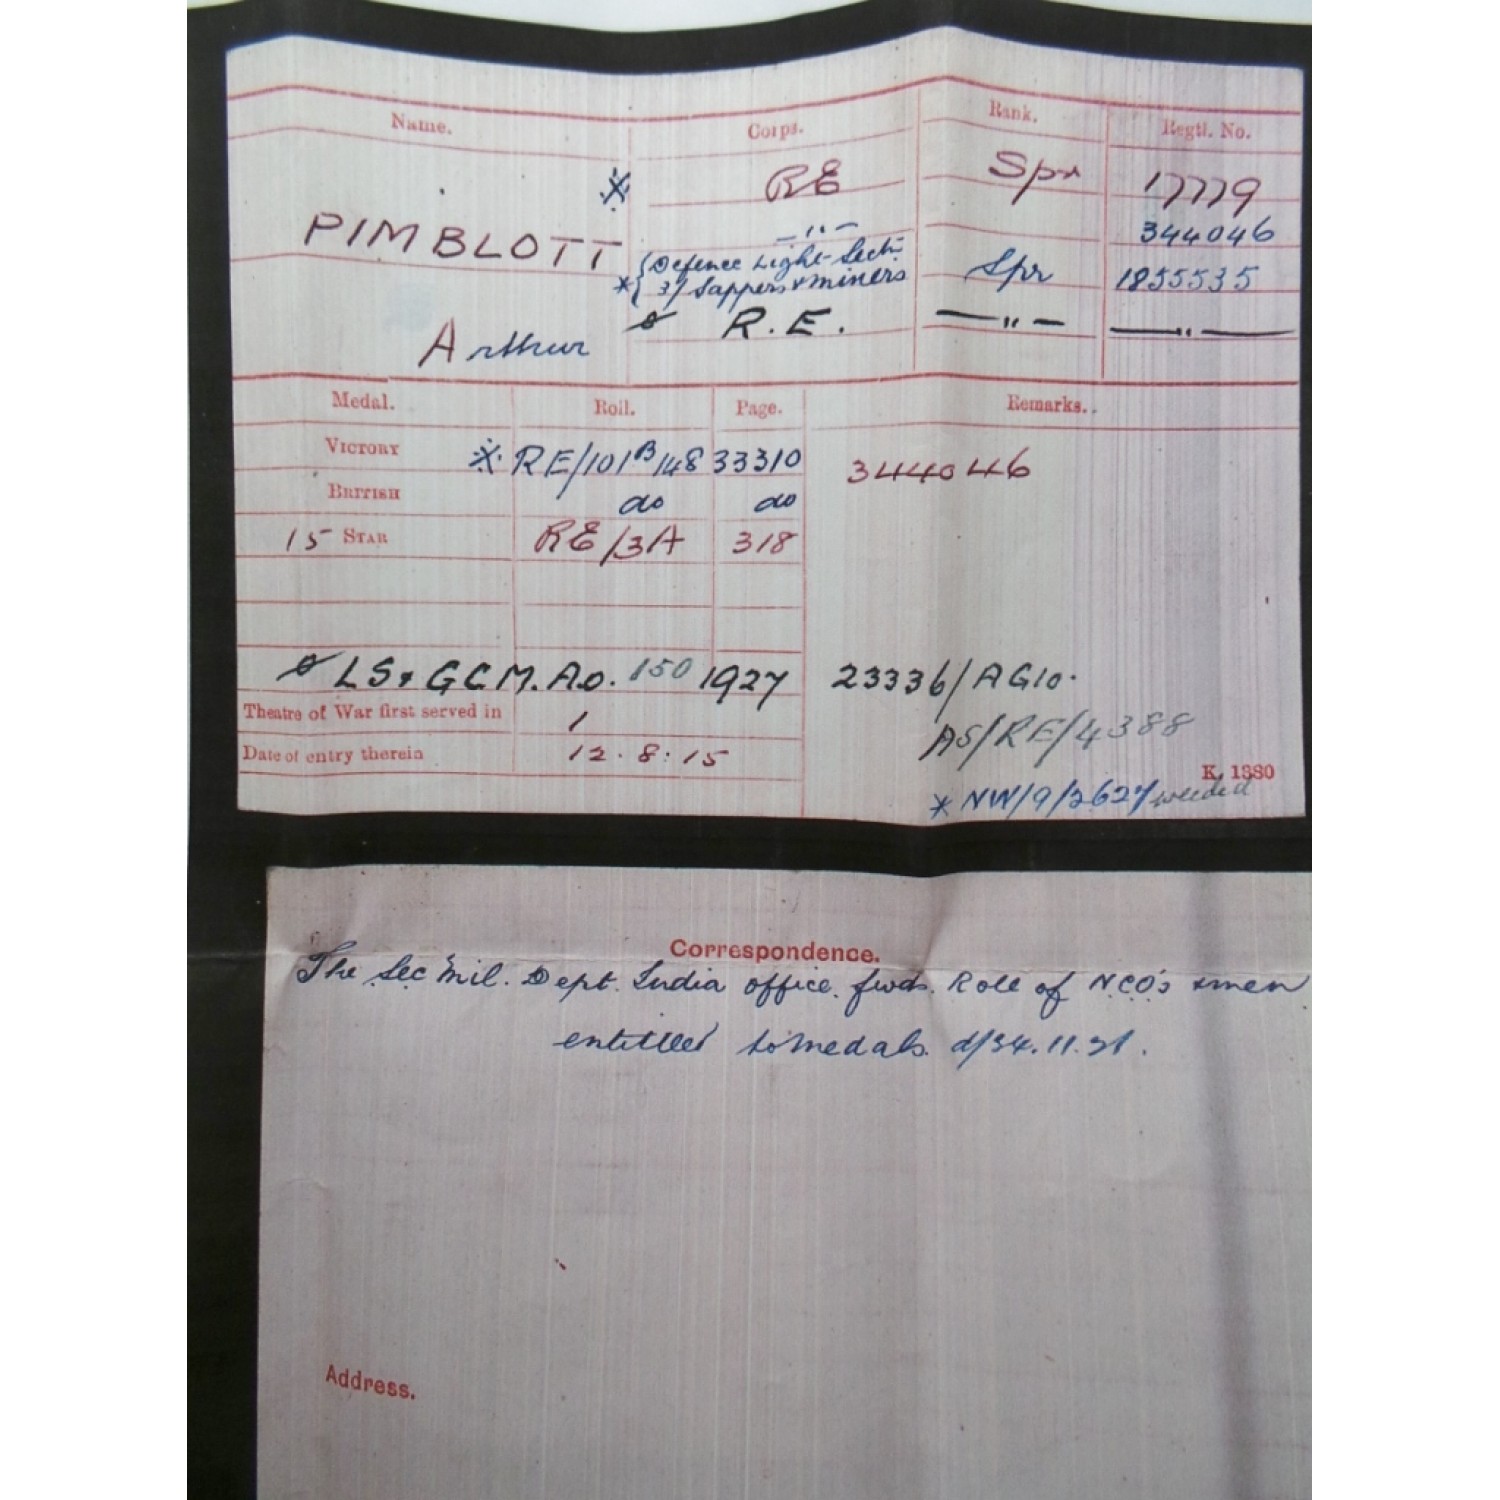 Name. Corps. Rank. Regtl. No.
* RE Spr 17779
—"— 344046
PIMBLOTT
* { Defence Light Sect. Spr 1855535
3/ Sappers & Miners
Arthur ø R.E. —"— —"—
Medal. Roll. Page. Remarks.
VICTORY * RE/101B/148 33310 344046
BRITISH do do
15 STAR RE/3A 318
ø LS & GCM. A.O. 150 1927 23336/AG10.
Theatre of War first served in 1 AS/RE/4388
Date of entry therein 12.8:15
K. 1380
* NW/9/2627 weeded
Correspondence.
The Sec Mil. Dept. India office. fwds. Roll of NCO's & men
entitled to medals.
Address.